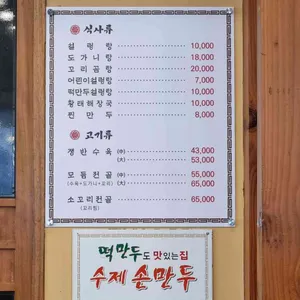 식사류
설렁탕 10,000
도가니탕 18,000
꼬리곰탕 20,000
어린이설렁탕 7,000
떡만두설렁탕 10,000
황태해장국 10,000
찐만두 8,000
고기류
쟁반수육 (中) 43,000
(大) 53,000
모듬전골 (中) 55,000
(수육+도가니+꼬리) (大) 65,000
소꼬리전골 65,000
(꼬리찜)
떡만두도 맛있는집
수제 손만두